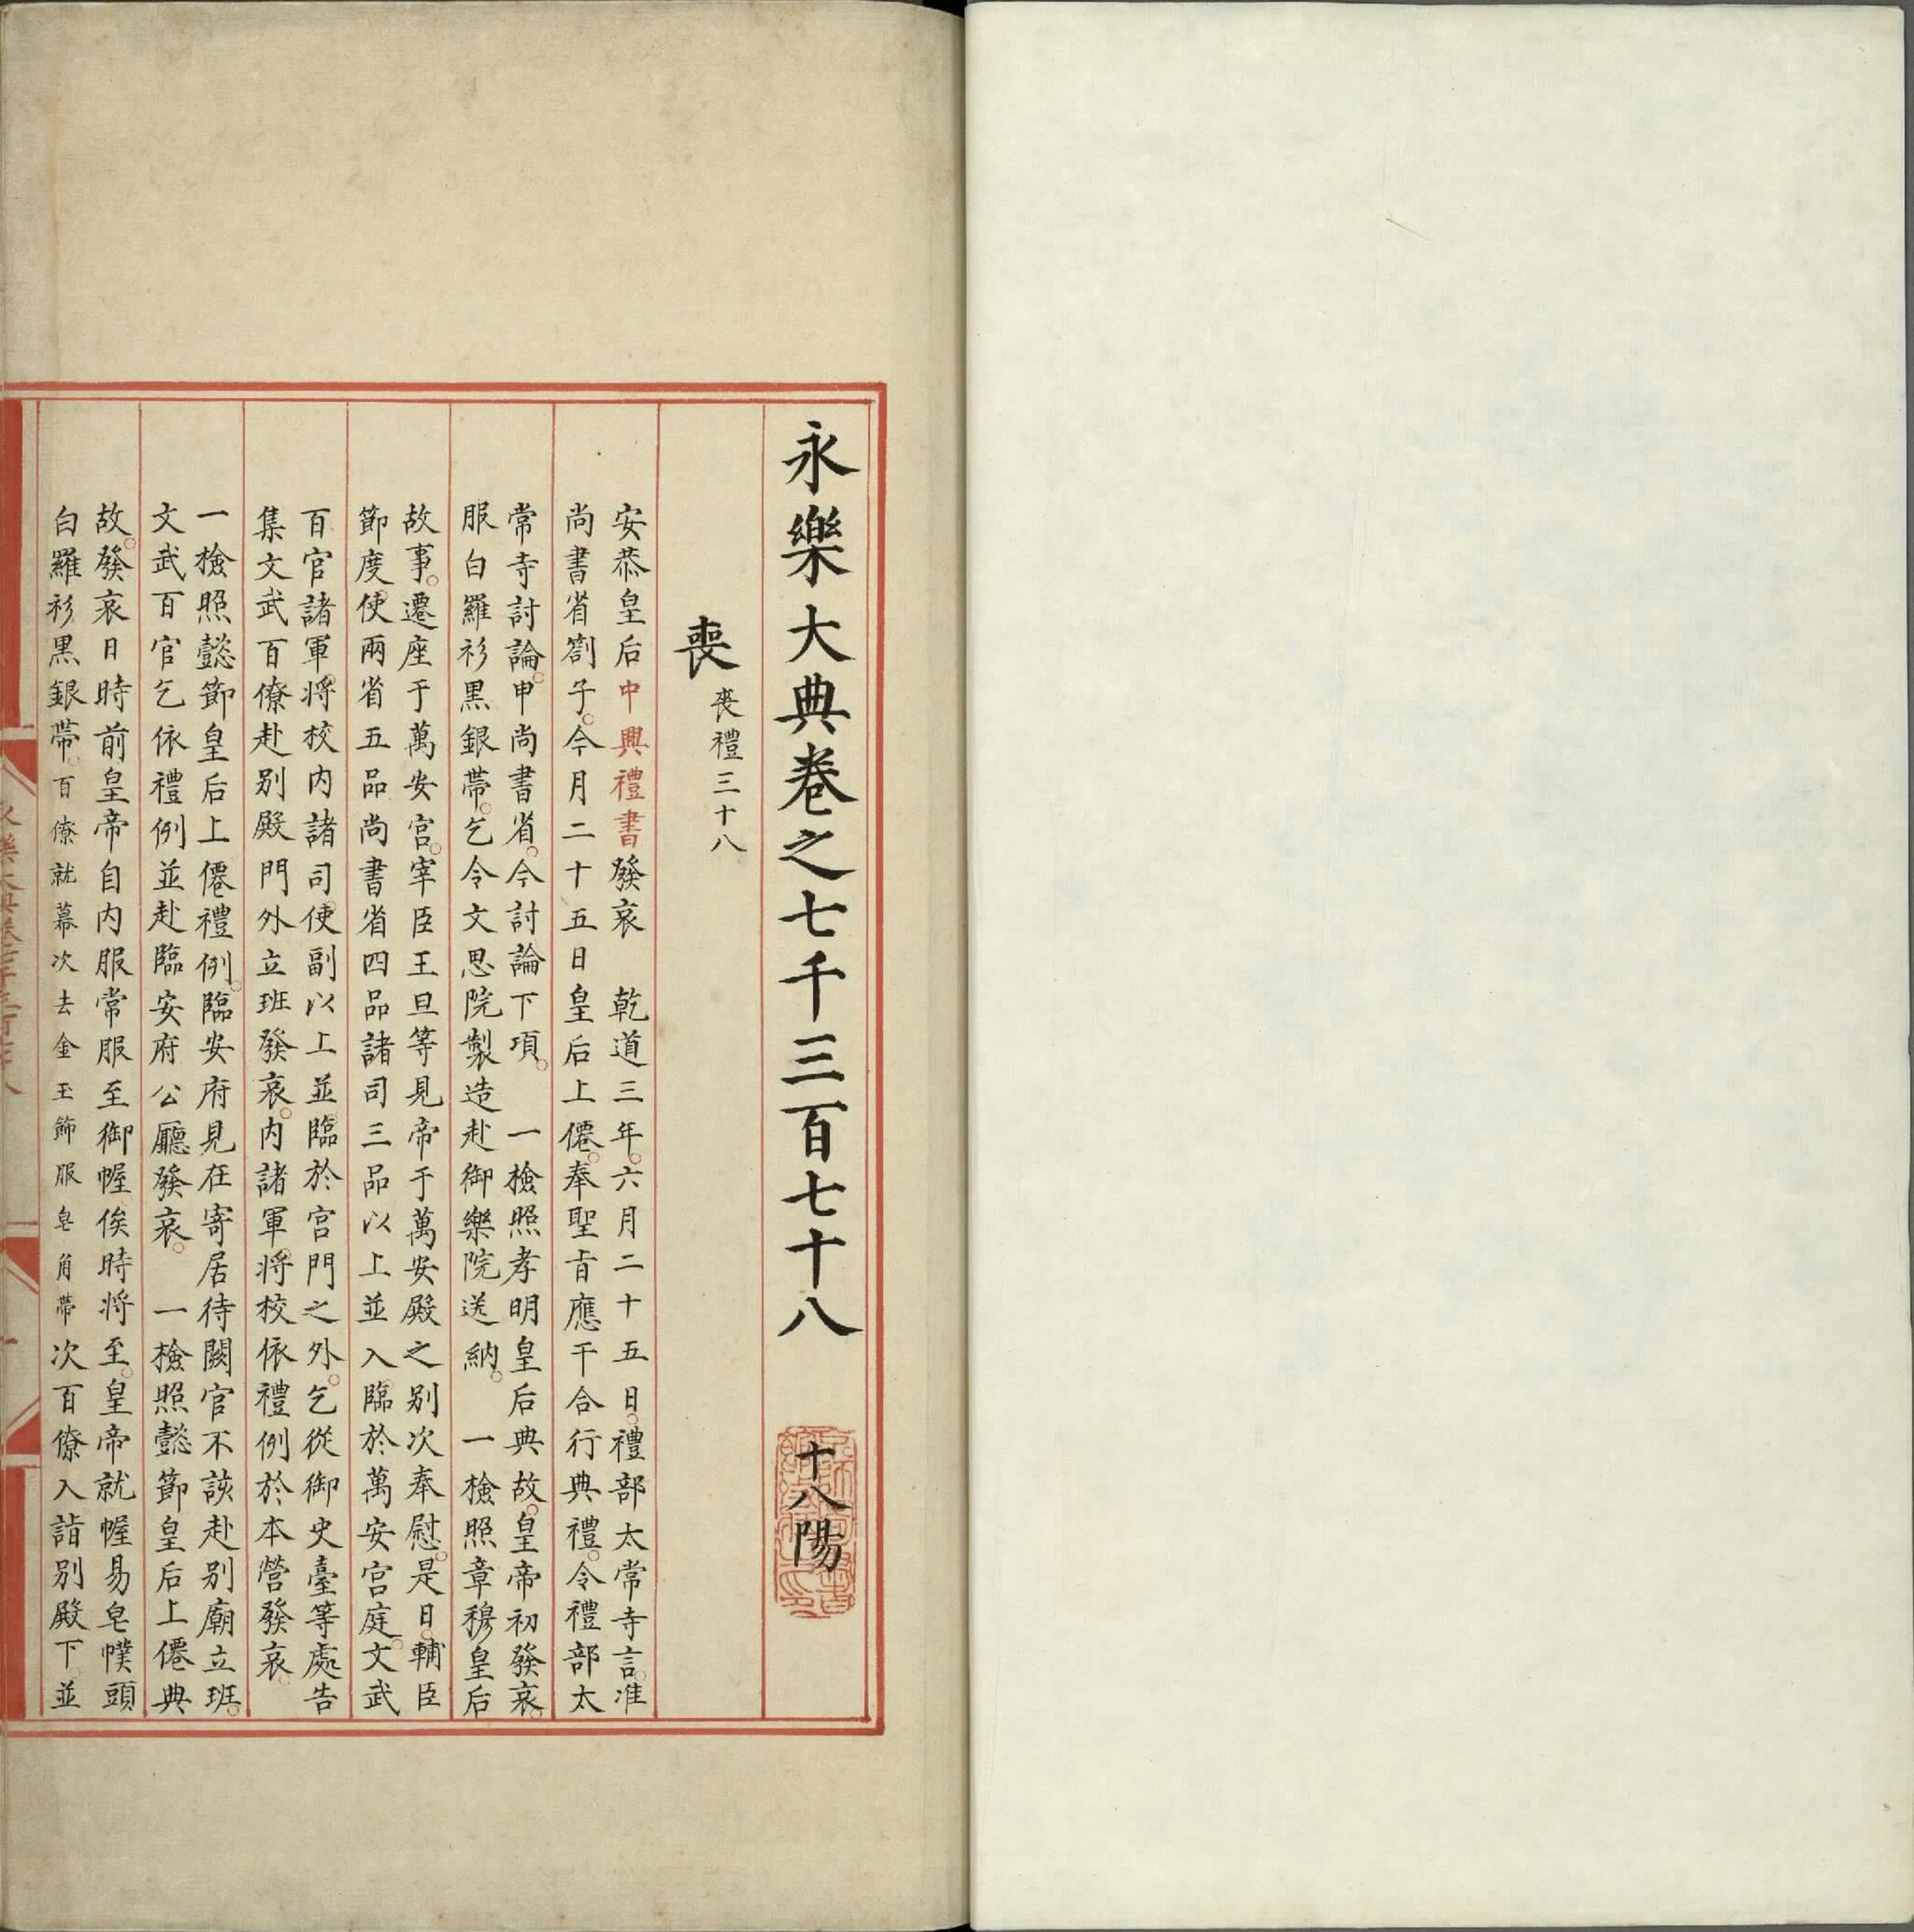 永樂大典卷之七千三百七十八 十八陽
喪 喪禮三十八
安恭皇后中興禮書發哀 乾道三年六月二十五日禮部太常寺言准
尚書省劄子今月二十五日皇后上僊奉聖旨應干合行典禮令禮部太
常寺討論申尚書省今討論下項 一檢照孝明皇后典故皇帝初發哀
服白羅衫黑銀帶乞令文思院製造赴御樂院送納 一檢照章穆皇后
故事遷座于萬安宮宰臣王旦等見帝于萬安殿之別次奉慰是日輔臣
節度使兩省五品尚書省四品諸司三品以上並入臨於萬安宮庭文武
百官諸軍將校内諸司使副以上並臨於宮門之外乞從御史臺等處告
集文武百僚赴别殿門外立班發哀内諸軍將校依禮例於本營發哀
一檢照懿節皇后上僊禮例臨安府見在寄居待闕官不該赴别廟立班
文武百官乞依禮例並赴臨安府公廳發哀 一檢照懿節皇后上僊典
故發哀日時前皇帝自内服常服至御幄俟時將至皇帝就幄易皂幞頭
白羅衫黑銀帶百僚就幕次去金玉飾服皂角帶次百僚入詣别殿下並